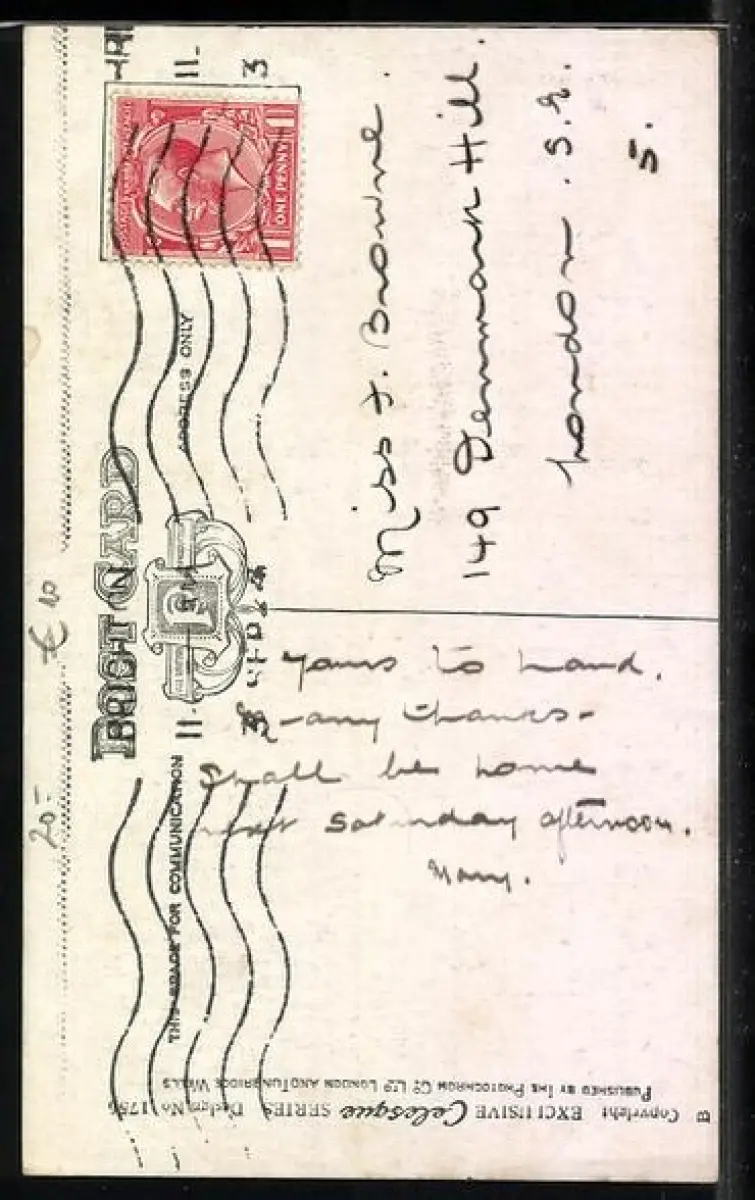 POST CARD
THIS SPACE FOR COMMUNICATION
ADDRESS ONLY
ONE PENNY
11-
3
11-
3 SP 24
Yours to hand.
Many thanks-
Shall be home
next Saturday afternoon.
Mary.
Miss F. Browne.
149 Denmark Hill.
London. S.E.
5.
20-
€ 10
B
Copyright EXCLUSIVE Celesque SERIES Design No 1756
PUBLISHED BY THE PHOTOCHROM CO LTD LONDON AND TUNBRIDGE WELLS